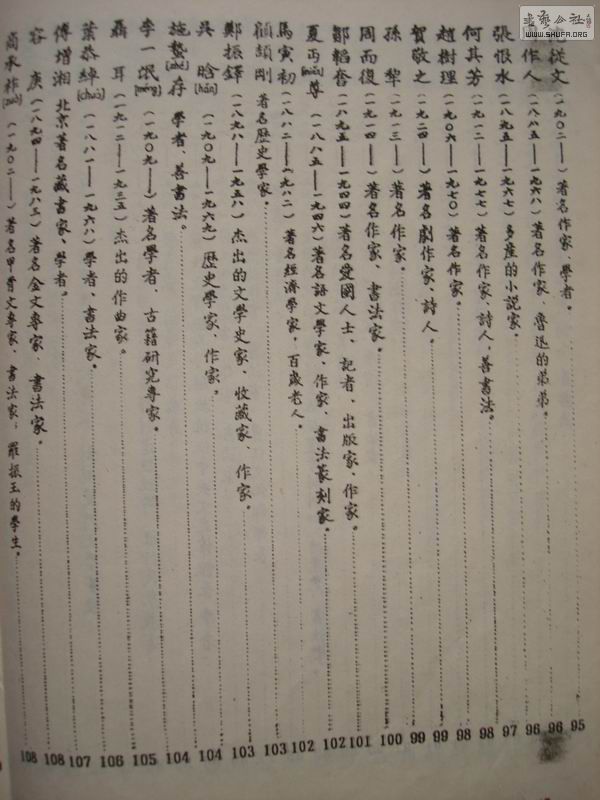 從文(一九〇二——)著名作家、學者。 95
作人(一八八五——一九六八)著名作家、魯迅的弟弟。 96
張恨水(一八九五——一九六七)多產的小說家。 96
何其芳(一九一二——一九七七)著名作家、詩人,善書法。 97
趙樹理(一九〇六——一九七〇)著名作家。 98
賀敬之(一九二四——)著名劇作家、詩人。 98
孫犁(一九一三——)著名作家。 99
周而復(一九一四——)著名作家、書法家。 99
鄒韜奮(一八九五——一九四四)著名愛國人士、記者、出版家、作家。 100
夏丏[miǎn]尊(一八八五——一九四六)著名語文學家、作家、書法篆刻家。 101
馬寅初(一八八二——一九八二)著名經濟學家,百歲老人。 102
顧頡剛 著名歷史學家。 102
鄭振鐸(一八九八——一九五八)杰出的文學史家、收藏家、作家。 103
吳晗[hán](一九〇九——一九六九)歷史學家、作家。 103
施蟄[zhé]存 學者、善書法。 104
李一氓[méng](一九〇九——)著名學者、古籍研究專家。 104
聶耳(一九一二——一九三五)杰出的作曲家。 105
葉恭綽[chuò](一八八一——一九六八)學者、書法家。 106
傅增湘 北京著名藏書家、學者。 107
容庚(一八九四——一九八三)著名金文專家、書法家。 108
商承祚[zuò](一九〇二——)著名甲骨文專家、書法家;羅振玉的學生。 108
書藝公社
WWW.SHUFA.ORG